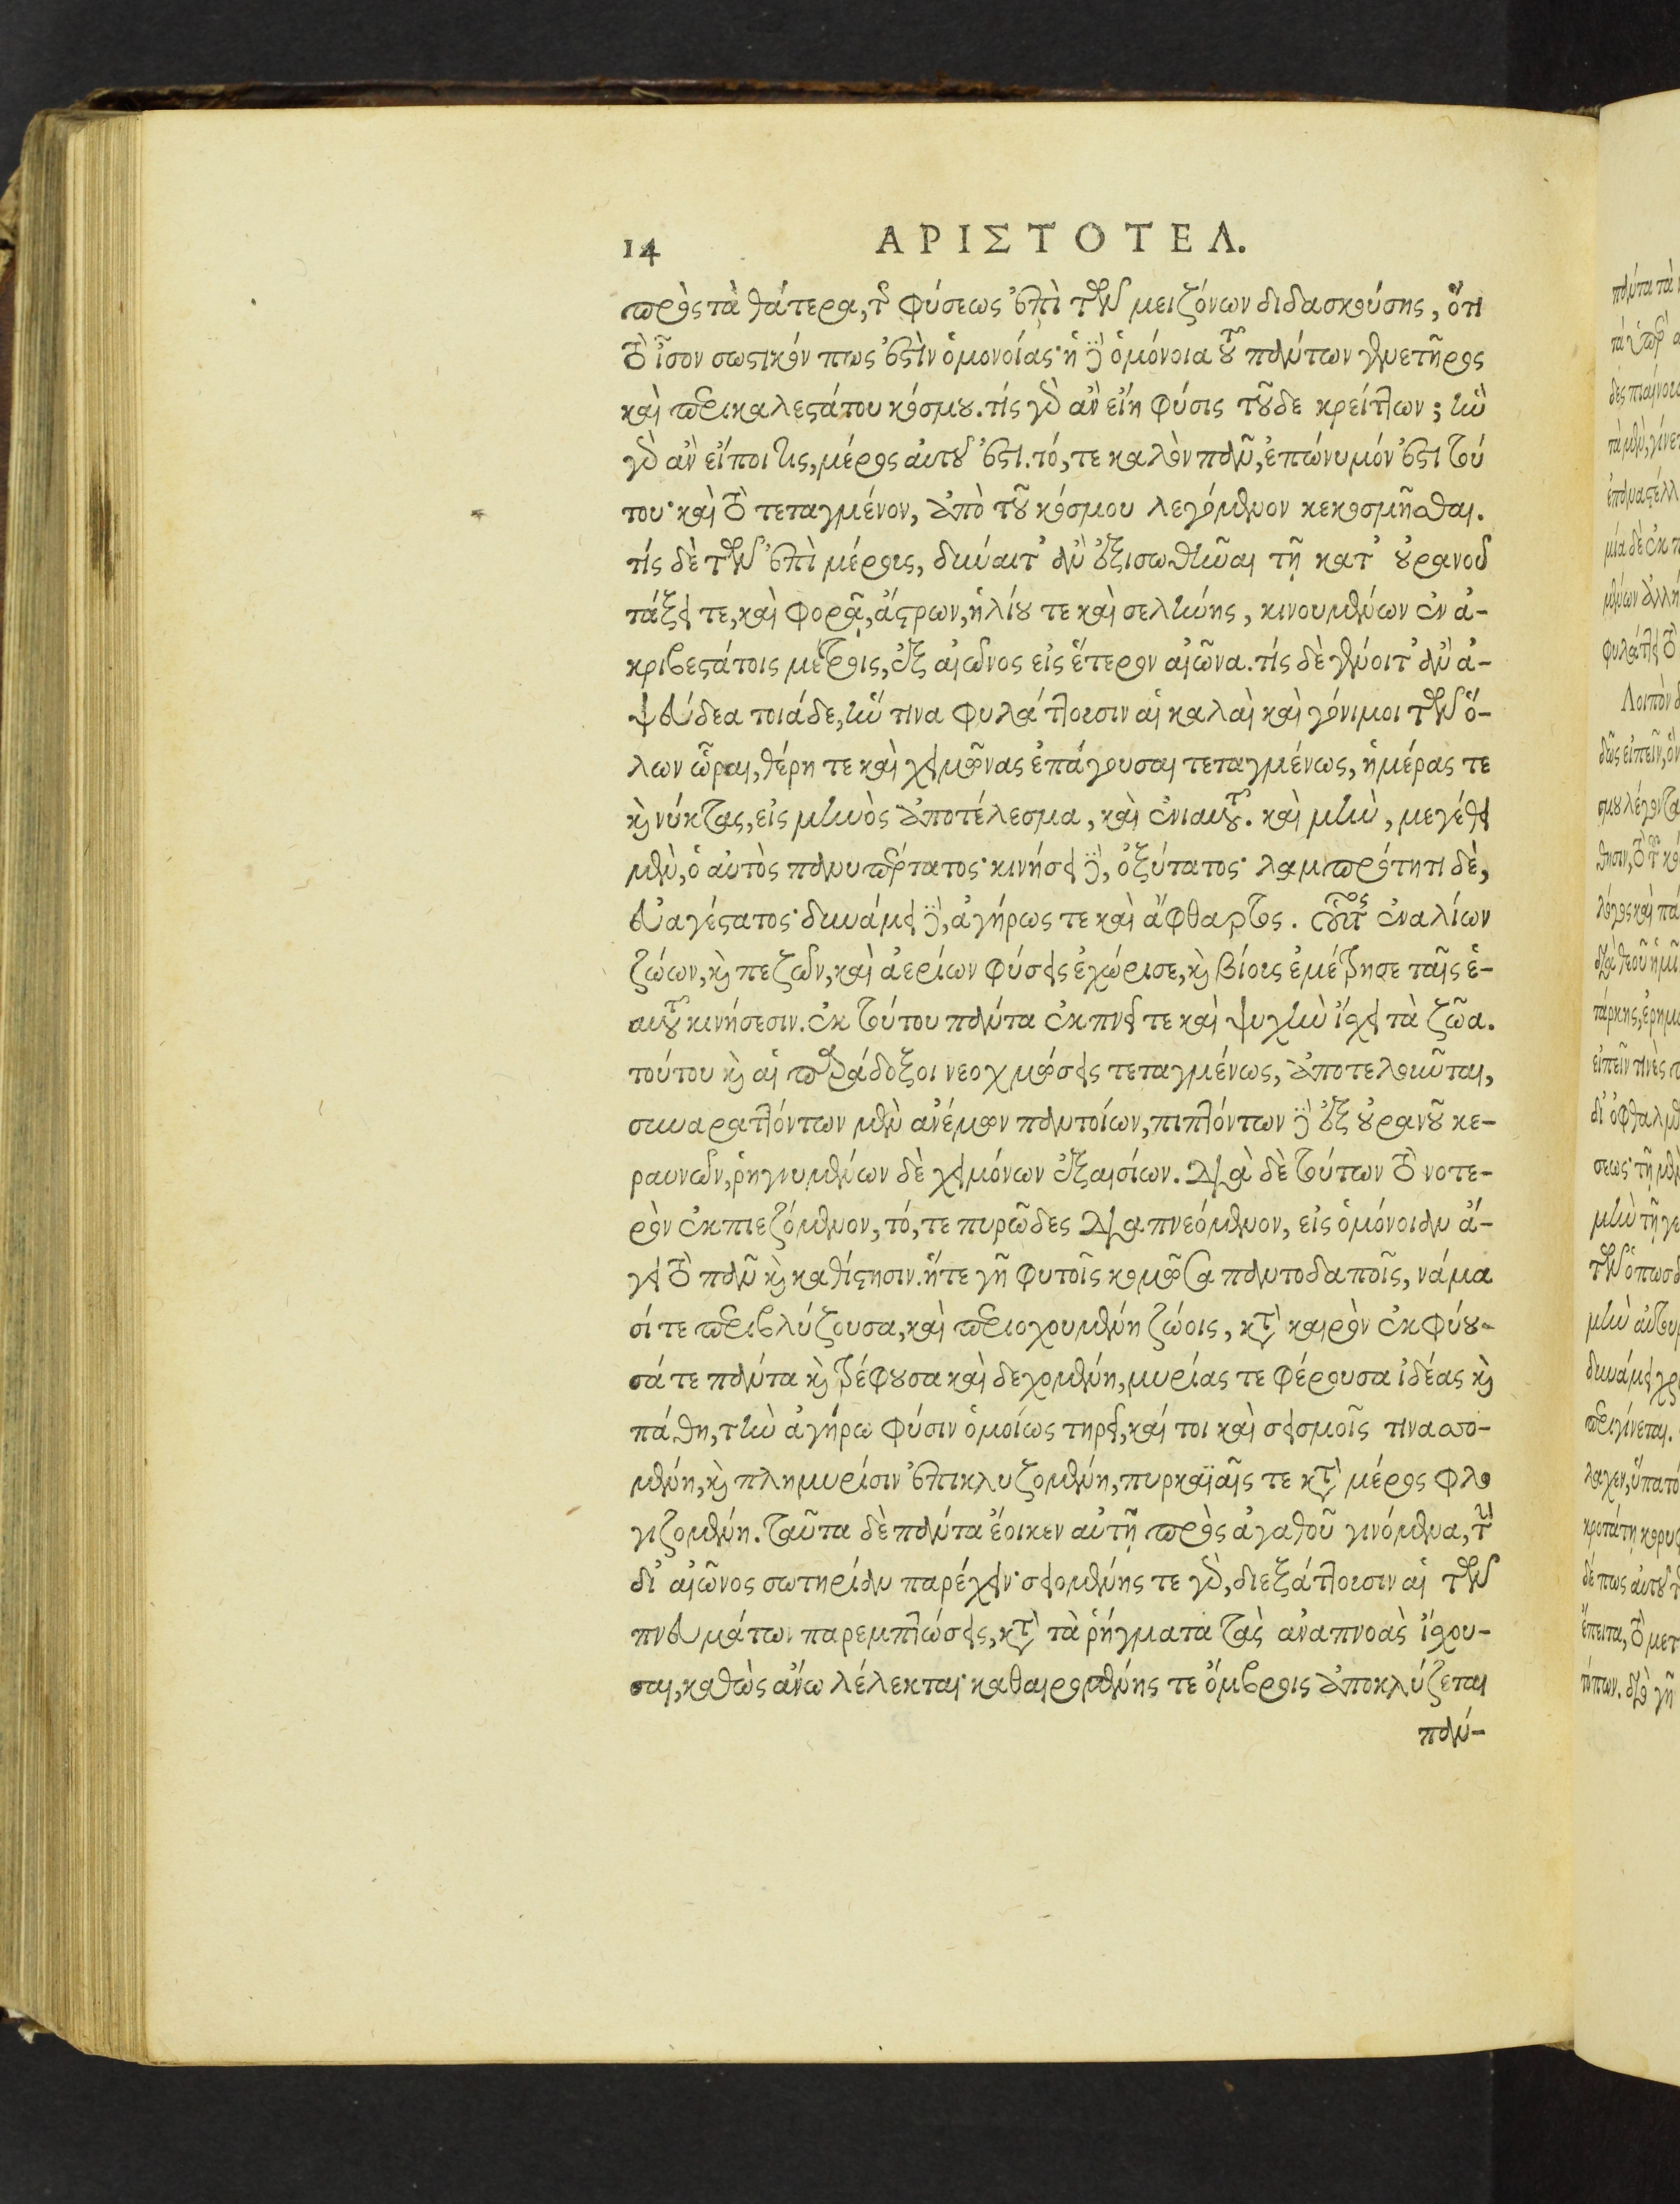 14 ΑΡΙΣΤΟΤΕΛ.
πρὸς τὰ θάτερα, τῆς φύσεως ἐπὶ τῶν μειζόνων διδασκούσης, ὅτι
τὸ ἶσον σωστικόν πως ἐστὶν ὁμονοίας· ἡ δὲ ὁμόνοια τοῦ πάντων γενετῆρος
καὶ περικαλεστάτου κόσμου. τίς γὰρ ἂν εἴη φύσις τοῦδε κρείττων; ἣν
γὰρ ἂν εἴποι τις, μέρος αὐτοῦ ἐστι. τό, τε καλὸν πᾶν, ἐπώνυμόν ἐστι τού
του· καὶ τὸ τεταγμένον, ἀπὸ τοῦ κόσμου λεγόμενον κεκοσμῆσθαι.
τίς δὲ τῶν ἐπὶ μέρους, δύναιτ' ἂν ἐξισωθῆναι τῇ κατ' οὐρανοῦ
τάξει τε, καὶ φορᾷ, ἄστρων, ἡλίου τε καὶ σελήνης, κινουμένων ἐν ἀ-
κριβεστάτοις μέτροις, ἐξ αἰῶνος εἰς ἕτερον αἰῶνα. τίς δὲ γένοιτ' ἂν ἀ-
ψεύδεα τοιάδε, ἥν τινα φυλάττουσιν αἱ καλαὶ καὶ γόνιμοι τῶν ὅ-
λων ὧραι, θέρη τε καὶ χειμῶνας ἐπάγουσαι τεταγμένως, ἡμέρας τε
καὶ νύκτας, εἰς μηνὸς ἀποτέλεσμα, καὶ ἐνιαυτοῦ. καὶ μὴν, μεγέθει
μὲν, ὁ αὐτὸς πανυπέρτατος· κινήσει δὲ, ὀξύτατος· λαμπρότητι δὲ,
εὐαγέστατος· δυνάμει δὲ, ἀγήρως τε καὶ ἄφθαρτος. οὗτος ἐναλίων
ζώων, καὶ πεζῶν, καὶ ἀερίων φύσεις ἐχώρισε, καὶ βίους ἐμέτρησε ταῖς ἑ-
αυτοῦ κινήσεσιν. ἐκ τούτου πάντα ἐκπνεῖ τε καὶ ψυχὴν ἴσχει τὰ ζῶα.
τούτου καὶ αἱ παράδοξοι νεοχμώσεις τεταγμένως, ἀποτελοῦνται,
συναραττόντων μὲν ἀνέμων παντοίων, πιπτόντων δὲ ἐξ οὐρανοῦ κε-
ραυνῶν, ῥηγνυμένων δὲ χειμόνων ἐξαισίων. διὰ δὲ τούτων τὸ νοτε-
ρὸν ἐκπιεζόμενον, τό, τε πυρῶδες διαπνεόμενον, εἰς ὁμόνοιαν ἄ-
γει τὸ πᾶν καὶ καθίστησιν. ἥτε γῆ φυτοῖς κομῶσα παντοδαποῖς, νάμα
σί τε περιβλύζουσα, καὶ περιοχουμένη ζώοις, κατὰ καιρὸν ἐκφύου-
σά τε πάντα καὶ τρέφουσα καὶ δεχομένη, μυρίας τε φέρουσα ἰδέας καὶ
πάθη, τὴν ἀγήρω φύσιν ὁμοίως τηρεῖ, καί τοι καὶ σεισμοῖς τινασσο-
μένη, καὶ πλημυρίσιν ἐπικλυζομένη, πυρκαϊαῖς τε κατὰ μέρος φλο
γιζομένη. ταῦτα δὲ πάντα ἔοικεν αὐτῇ πρὸς ἀγαθοῦ γινόμενα, τὴν
δι' αἰῶνος σωτηρίαν παρέχειν· σειομένης τε γὰρ, διεξάττουσιν αἱ τῶν
πνευμάτων παρεμπτώσεις, κατὰ τὰ ῥήγματα τὰς ἀναπνοὰς ἴσχου-
σαι, καθὼς ἄνω λέλεκται· καθαιρομένης τε ὄμβροις ἀποκλύζεται
πάν-